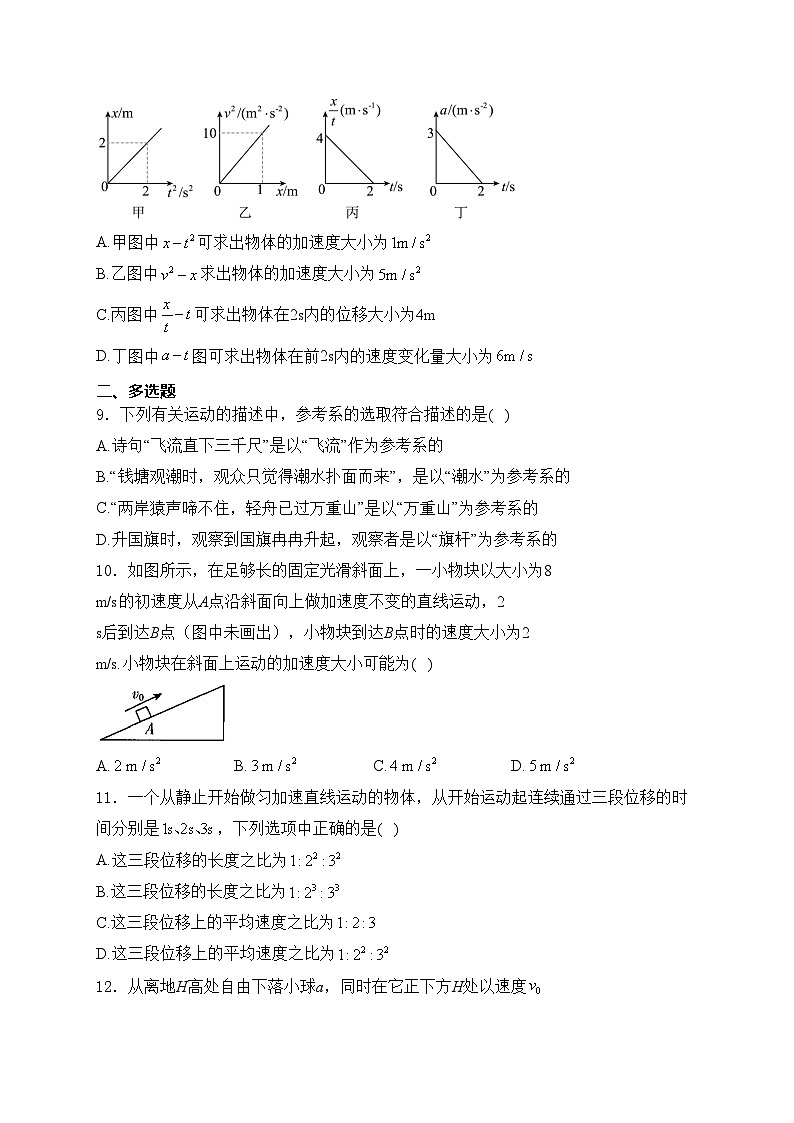 x/m v²/(m²·s⁻²) x/t (m·s⁻¹) a/(m·s⁻²)
2 10 4 3
0 2 t²/s² 0 1 x/m 0 2 t/s 0 2 t/s
甲 乙 丙 丁
A.甲图中x-t²可求出物体的加速度大小为1m/s²
B.乙图中v²-x求出物体的加速度大小为5m/s²
C.丙图中x/t-t可求出物体在2s内的位移大小为4m
D.丁图中a-t图可求出物体在前2s内的速度变化量大小为6m/s
二、多选题
9．下列有关运动的描述中，参考系的选取符合描述的是( )
A.诗句“飞流直下三千尺”是以“飞流”作为参考系的
B.“钱塘观潮时，观众只觉得潮水扑面而来”，是以“潮水”为参考系的
C.“两岸猿声啼不住，轻舟已过万重山”是以“万重山”为参考系的
D.升国旗时，观察到国旗冉冉升起，观察者是以“旗杆”为参考系的
10．如图所示，在足够长的固定光滑斜面上，一小物块以大小为8
m/s的初速度从A点沿斜面向上做加速度不变的直线运动，2
s后到达B点（图中未画出），小物块到达B点时的速度大小为2
m/s.小物块在斜面上运动的加速度大小可能为( )
v₀
A
A. 2 m/s² B. 3 m/s² C. 4 m/s² D. 5 m/s²
11．一个从静止开始做匀加速直线运动的物体，从开始运动起连续通过三段位移的时
间分别是1s、2s、3s，下列选项中正确的是( )
A.这三段位移的长度之比为1:2²:3²
B.这三段位移的长度之比为1:2³:3³
C.这三段位移上的平均速度之比为1:2:3
D.这三段位移上的平均速度之比为1:2²:3²
12．从离地H高处自由下落小球a，同时在它正下方H处以速度v₀